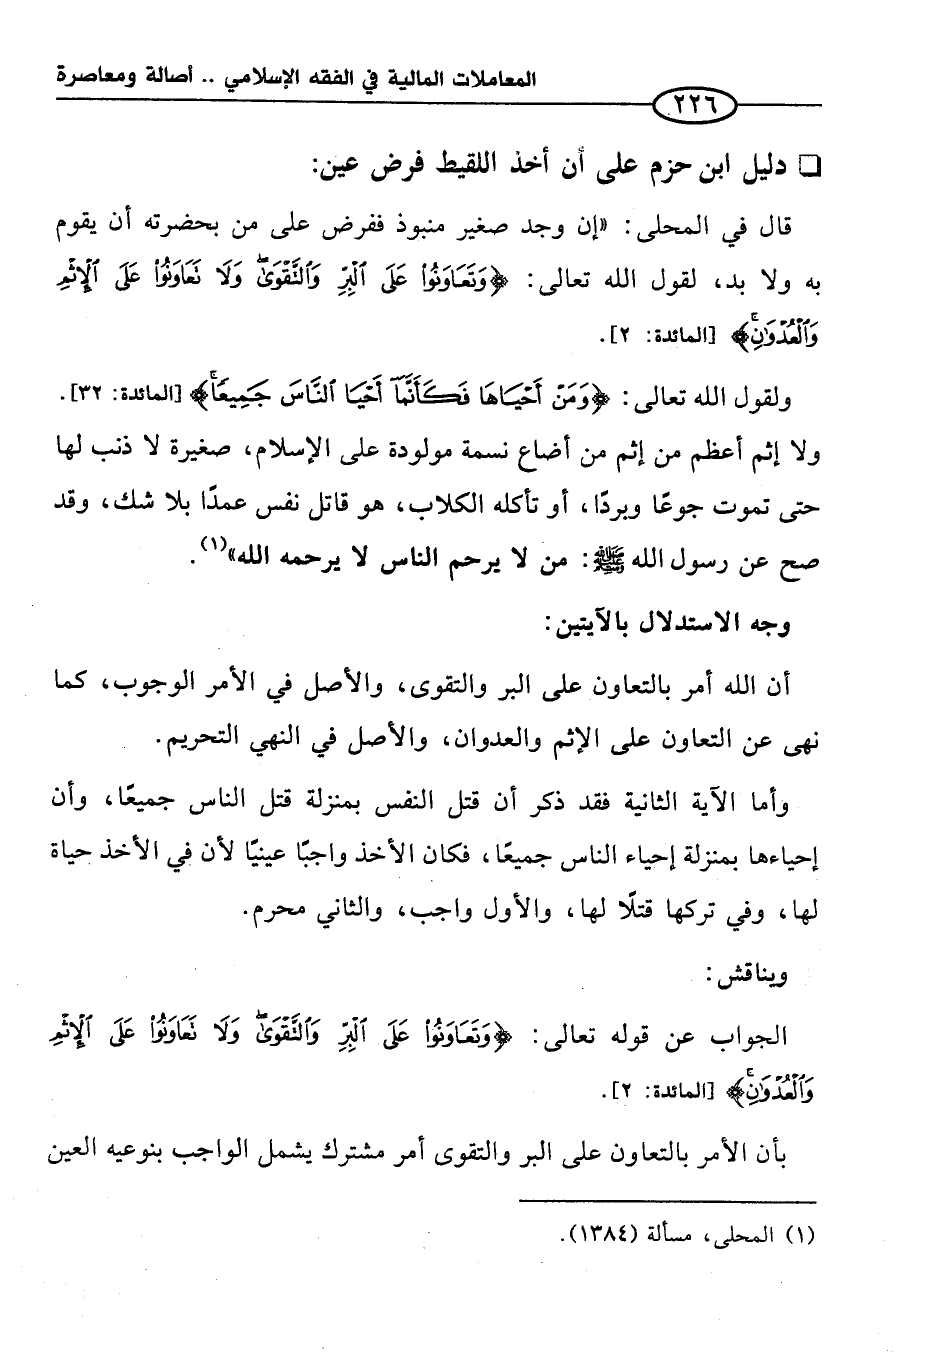 المعاملات المالية في الفقه الإسلامي .. أصالة ومعاصرة
٢٢٦
❏ دليل ابن حزم على أن أخذ اللقيط فرض عين:
قال في المحلى: «إن وجد صغير منبوذ ففرض على من بحضرته أن يقوم
به ولا بد، لقول الله تعالى: ﴿وَتَعَاوَنُوا۟ عَلَى ٱلْبِرِّ وَٱلتَّقْوَىٰ ۖ وَلَا نَعَاوَنُوا۟ عَلَى ٱلْإِثْمِ
وَٱلْعُدْوَٰنِ ۚ﴾ [المائدة: ٢].
ولقول الله تعالى: ﴿وَمَنْ أَحْيَاهَا فَكَأَنَّمَآ أَحْيَا ٱلنَّاسَ جَمِيعًا ۚ﴾ [المائدة: ٣٢].
ولا إثم أعظم من إثم من أضاع نسمة مولودة على الإسلام، صغيرة لا ذنب لها
حتى تموت جوعًا وبردًا، أو تأكله الكلاب، هو قاتل نفس عمدًا بلا شك، وقد
صح عن رسول الله ﷺ: من لا يرحم الناس لا يرحمه الله»(١).
وجه الاستدلال بالآيتين:
أن الله أمر بالتعاون على البر والتقوى، والأصل في الأمر الوجوب، كما
نهى عن التعاون على الإثم والعدوان، والأصل في النهي التحريم.
وأما الآية الثانية فقد ذكر أن قتل النفس بمنزلة قتل الناس جميعًا، وأن
إحياءها بمنزلة إحياء الناس جميعًا، فكان الأخذ واجبًا عينيًا لأن في الأخذ حياة
لها، وفي تركها قتلًا لها، والأول واجب، والثاني محرم.
ويناقش:
الجواب عن قوله تعالى: ﴿وَتَعَاوَنُوا۟ عَلَى ٱلْبِرِّ وَٱلتَّقْوَىٰ ۖ وَلَا نَعَاوَنُوا۟ عَلَى ٱلْإِثْمِ
وَٱلْعُدْوَٰنِ ۚ﴾ [المائدة: ٢].
بأن الأمر بالتعاون على البر والتقوى أمر مشترك يشمل الواجب بنوعيه العين
(١) المحلى، مسألة (١٣٨٤).